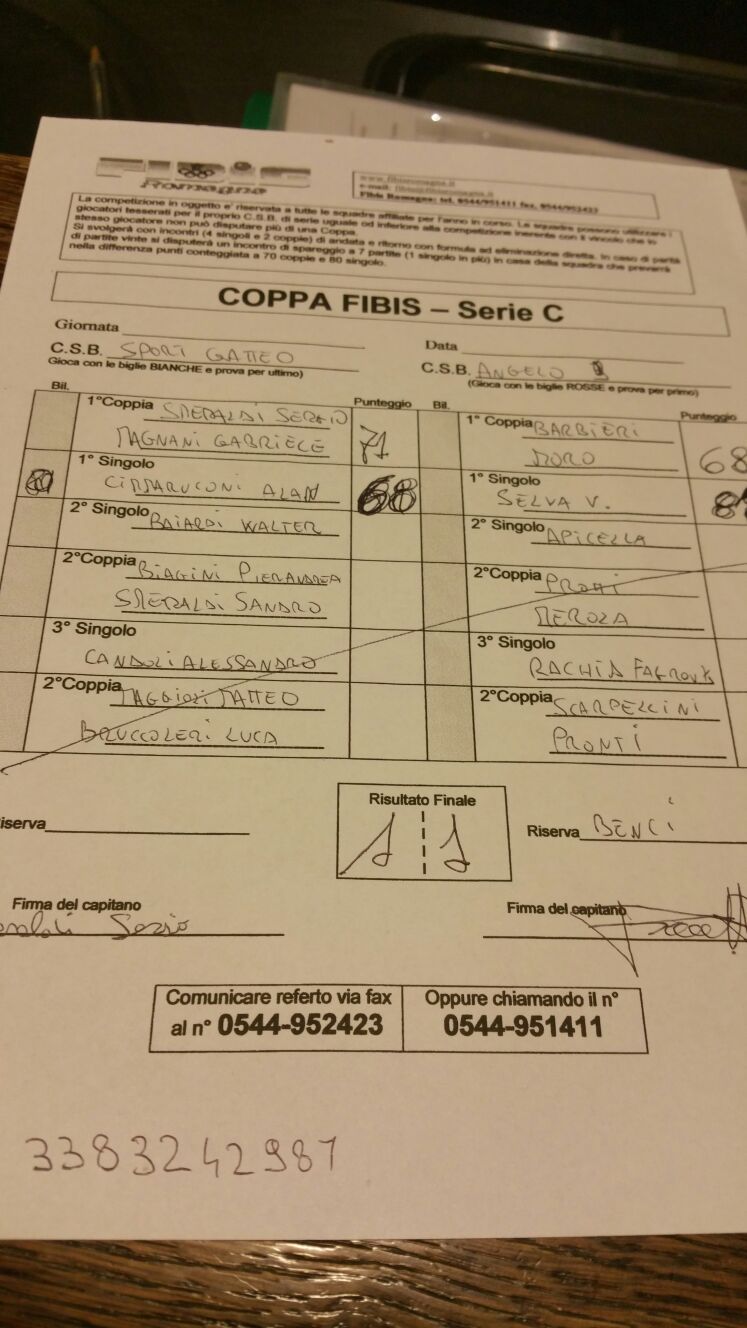 Romagna
www.fibisromagna.it
e-mail:
Fibis Romagna: tel. 0544/951411 fax. 0544/952423
La competizione in oggetto e' riservata a tutte le squadre affiliate per l'anno in corso. Le squadre possono utilizzare i
giocatori tesserati per il proprio C.S.B. di serie uguale od inferiore alla competizione inerente con il vincolo che lo
stesso giocatore non può disputare più di una Coppa.
Si svolgerà con incontri (4 singoli e 2 coppie) di andata e ritorno con formula ad eliminazione diretta. In caso di parità
di partite vinte si disputerà un incontro di spareggio a 7 partite (1 singolo in più) in casa della squadra che prevarrà
nella differenza punti conteggiata a 70 coppie e 80 singolo.
COPPA FIBIS – Serie C
Giornata
Data
C.S.B. SPORT GATTEO
C.S.B. ANGELO
Gioca con le biglie BIANCHE e prova per ultimo)
(Gioca con le biglie ROSSE e prova per primo)
Bil.
Punteggio
Bil.
Punteggio
1°Coppia SMERALDI SERGIO
MAGNANI GABRIELE
71
1° Coppia BARBIERI
MORO
68
1° Singolo
ALAN
68
1° Singolo
SELVA V.
2° Singolo BAIARDI WALTER
2° Singolo APICELLA
2°Coppia BIAGINI PIERANDREA
SMERALDI SANDRO
2°Coppia
MEROZA
3° Singolo
CANDOLI ALESSANDRO
3° Singolo
RACHID
2°Coppia MAGGIOLI MATTEO
BRUCCOLERI LUCA
2°Coppia SCARPELLINI
PRONTI
Risultato Finale
1 1
Riserva BENCI
iserva
Firma del capitano
Firma del capitano
Comunicare referto via fax
al n° 0544-952423
Oppure chiamando il n°
0544-951411
3383242987